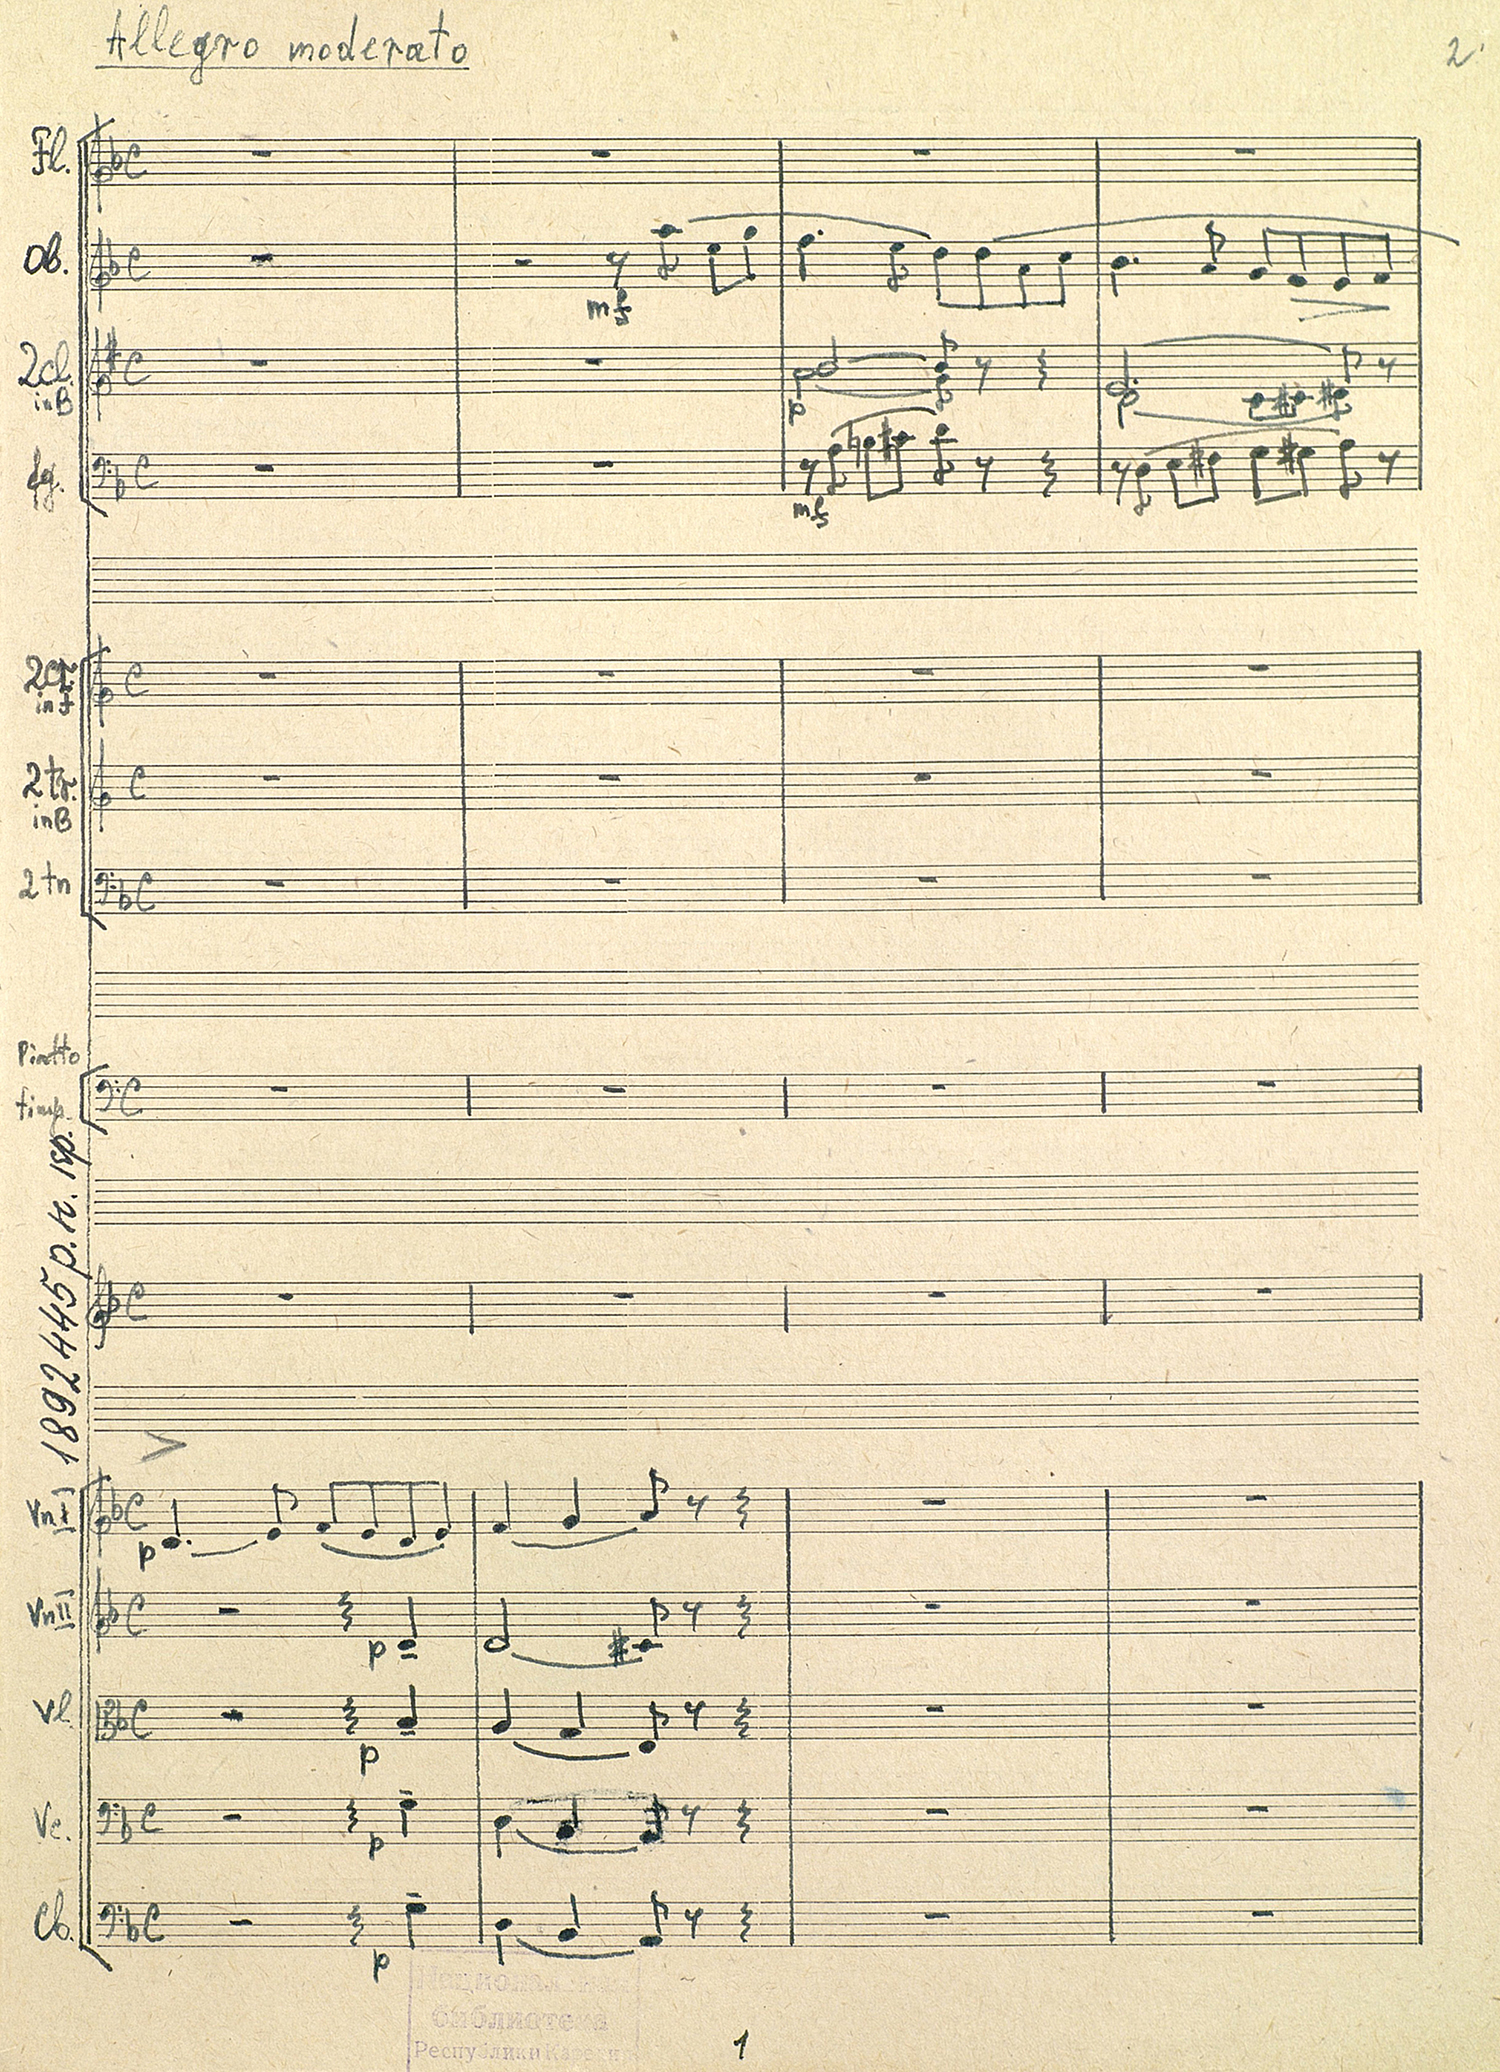 Allegro moderato
2
Fl.
Ob.
mf
2cl.
in B
p
p
fg.
mf
2cr.
in F
2tr.
in B
2 tn
Piatto
timp.
1892445 р.к.
Vn I
p
Vn II
p
Vl.
p
Vc.
p
Cb.
p
Национальная
библиотека
Республики Карелия
1